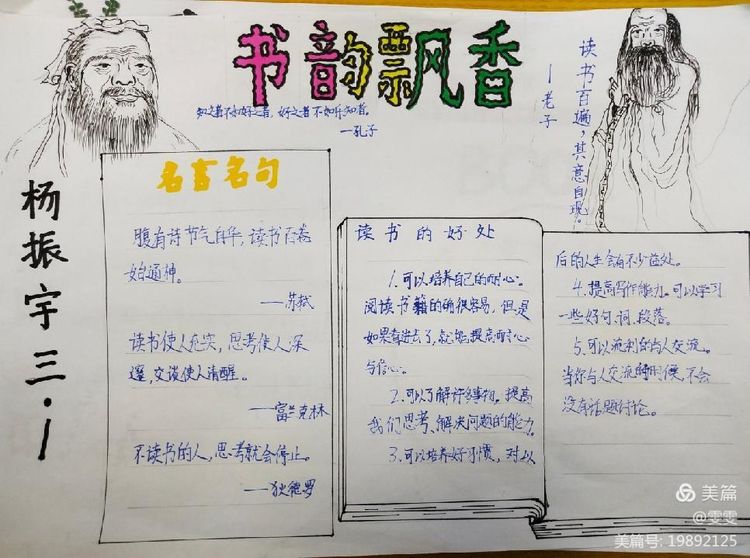 书韵飘香
知之者不如好之者，好之者不如乐知者。
—孔子
读书百遍，其意自现。
—老子
杨振宇三·1
名言名句
腹有诗书气自华，读书百卷
始通神。
—苏轼
读书使人充实，思考使人深
邃，交谈使人清醒。
—富兰克林
不读书的人，思考就会停止。
—狄德罗
读书的好处
1.可以培养自己的耐心。
阅读书籍的确很容易，但是
如果看进去了，就能提高耐心
与信心。
2.可以了解许多事物。提高
我们思考、解决问题的能力。
3.可以培养好习惯，对以
后的人生会有不少益处。
4.提高写作能力。可以学习
一些好句、词、段落。
5.可以流利的与人交流。
当你与人交流的时候，不会
没有话题讨论。
美篇
@雯雯
美篇号: 19892125